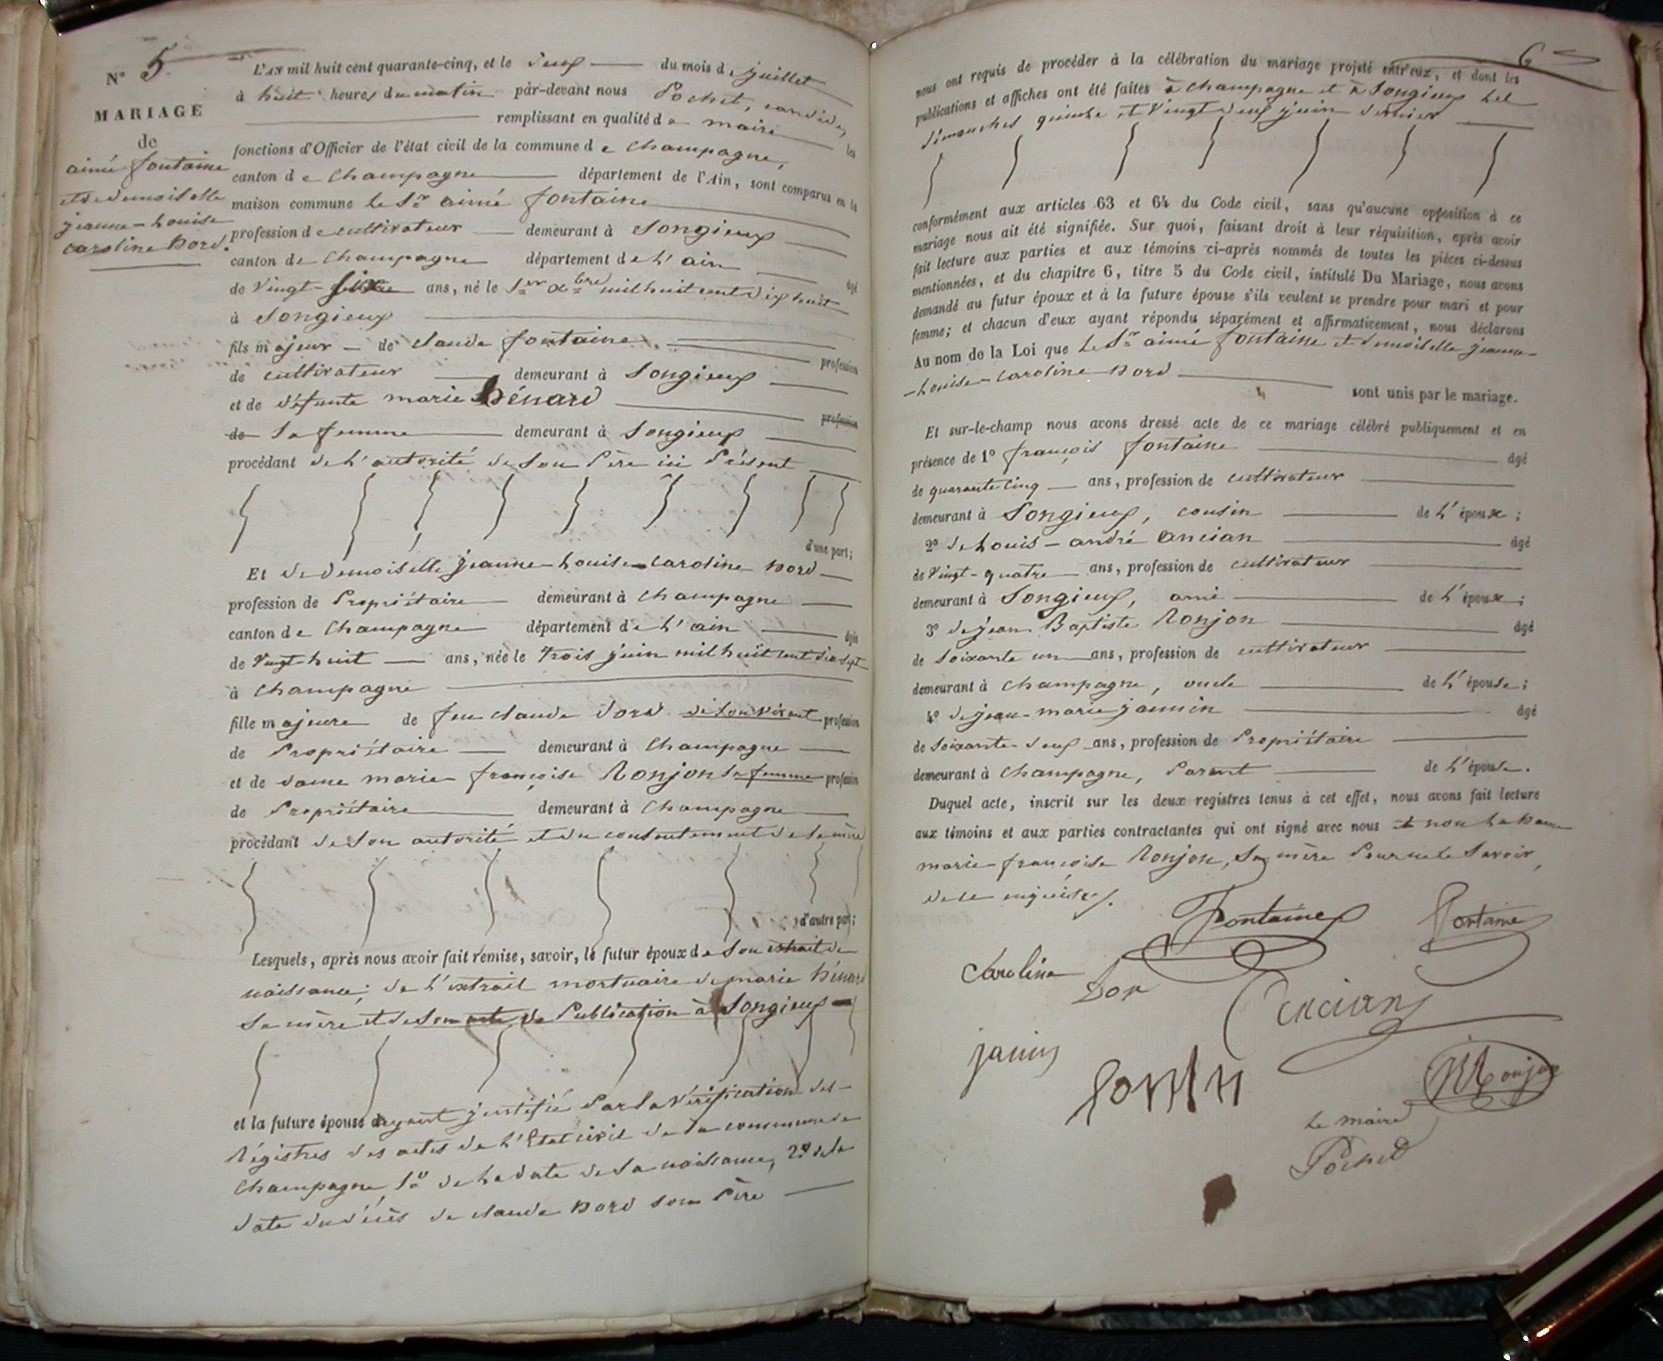 N° 5.
MARIAGE
de
aimé fontaine
et de demoiselle
jeanne-Louise
Caroline Dord.
L'AN mil huit cent quarante-cinq, et le deux du mois de juillet
à huit heures du matin par-devant nous Pochet,
remplissant en qualité de maire les
fonctions d'Officier de l'état civil de la commune de Champagne,
canton de Champagne département de l'Ain, sont comparus en la
maison commune le Sr aimé fontaine
profession de cultivateur demeurant à Songieux
canton de Champagne département de L'ain âgé
de vingt-six ans, né le 1er Xbre mil huit cent dix huit
à Songieux
fils majeur de Claude fontaine profession
de cultivateur demeurant à Songieux
et de défunte marie Bénard profession
de Sa femme demeurant à Songieux
procédant de L'autorité de Son Père ici Présent
d'une part;
Et de demoiselle jeanne-Louise-Caroline Dord
profession de Propriétaire demeurant à Champagne
canton de Champagne département de L'ain âgée
de vingt-huit ans, née le trois juin mil huit cent dix sept
à Champagne
fille majeure de feu Claude Dord de Son vivant profession
de Propriétaire demeurant à Champagne
et de dame marie françoise Ronjon Sa femme profession
de Propriétaire demeurant à Champagne
procédant de Son autorité et du consentement de Sa mère
d'autre part;
Lesquels, après nous avoir fait remise, savoir, le futur époux de Son extrait de
naissance; de L'extrait mortuaire de marie Bénard
Sa mère et de Son acte de Publication à Songieux
et la future épouse ayant justifié Par la Vérification des
Régistres des actes de L'Etat civil de la commune de
Champagne, 1° de La date de Sa naissance, 2° de la
date du décès de Claude Dord Son Père
6
nous ont requis de procéder à la célébration du mariage projeté entr'eux, et dont les
publications et affiches ont été faites à Champagne et à Songieux Les
dimanches quinze et vingt deux juin dernier
conformément aux articles 63 et 64 du Code civil, sans qu'aucune opposition à ce
mariage nous ait été signifiée. Sur quoi, faisant droit à leur réquisition, après avoir
fait lecture aux parties et aux témoins ci-après nommés de toutes les pièces ci-dessus
mentionnées, et du chapitre 6, titre 5 du Code civil, intitulé Du Mariage, nous avons
demandé au futur époux et à la future épouse s'ils veulent se prendre pour mari et pour
femme; et chacun d'eux ayant répondu séparément et affirmativement, nous déclarons
Au nom de la Loi que Le Sr aimé fontaine et demoiselle jeanne-
-Louise-Caroline Dord
sont unis par le mariage.
Et sur-le-champ nous avons dressé acte de ce mariage célébré publiquement et en
présence de 1° françois fontaine âgé
de quarante cinq ans, profession de cultivateur
demeurant à Songieux, cousin de L'époux;
2° de Louis-andré ancian âgé
de vingt-quatre ans, profession de cultivateur
demeurant à Songieux, ami de L'époux;
3° de jean Baptiste Ronjon âgé
de Soixante un ans, profession de cultivateur
demeurant à Champagne, oncle de L'épouse;
4° de jean-marie jannin âgé
de Soixante-deux ans, profession de Propriétaire
demeurant à Champagne, Parent de L'épouse.
Duquel acte, inscrit sur les deux registres tenus à cet effet, nous avons fait lecture
aux témoins et aux parties contractantes qui ont signé avec nous et non La Dame
marie-françoise Ronjon, Sa mère Pour ne le Savoir,
de ce enquise.
Fontaine
Fontaine
Caroline
Dor
ancian
janin
Ronjon
Le maire
Pochet